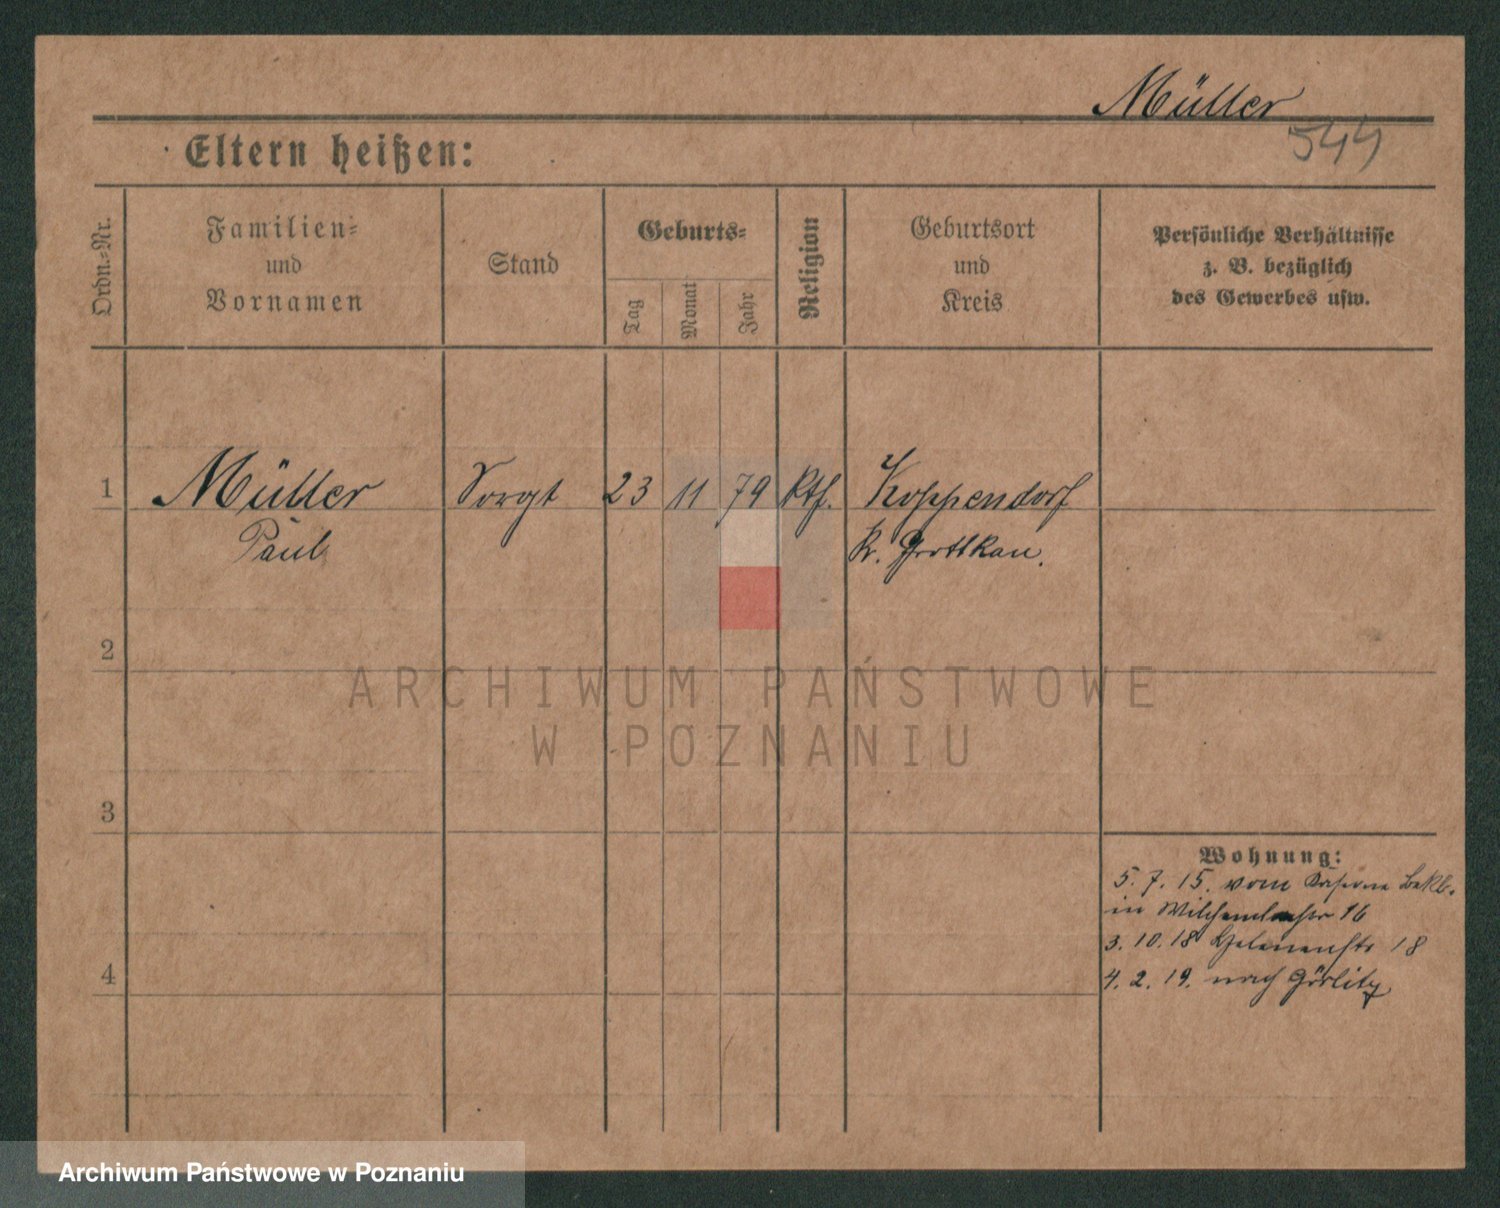 Müller
544
Eltern heißen:
Ordn.-Nr.
Familien-
und
Vornamen
Stand
Geburts-
Tag
Monat
Jahr
Religion
Geburtsort
und
Kreis
Persönliche Verhältnisse
z. B. bezüglich
des Gewerbes usw.
1 Müller 23 11 79 kth. Koppendorf
Paul Kr. Grottkau.
2
ARCHIWUM PAŃSTWOWE
W POZNANIU
3
Wohnung:
5. 7. 15. vom Kaserne
in 16
3. 10. 18 Helenenstr 18
4
4. 2. 19. nach Görlitz
Archiwum Państwowe w Poznaniu